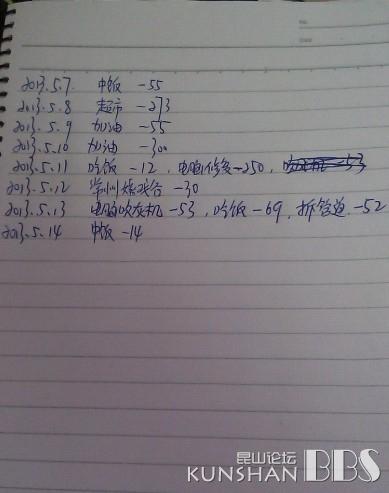 2013.5.7 中饭 -55
2013.5.8 超市 -273
2013.5.9 加油 -55
2013.5.10 加油 -300
2013.5.11 吃饭 -12, 电脑修复-250, -53
2013.5.12 常州嬉戏谷 -30
2013.5.13 电脑吹灰机 -53, 吃饭 -69, 拆管道 -52
2013.5.14 中饭 -14
昆山论坛
KUNSHAN BBS